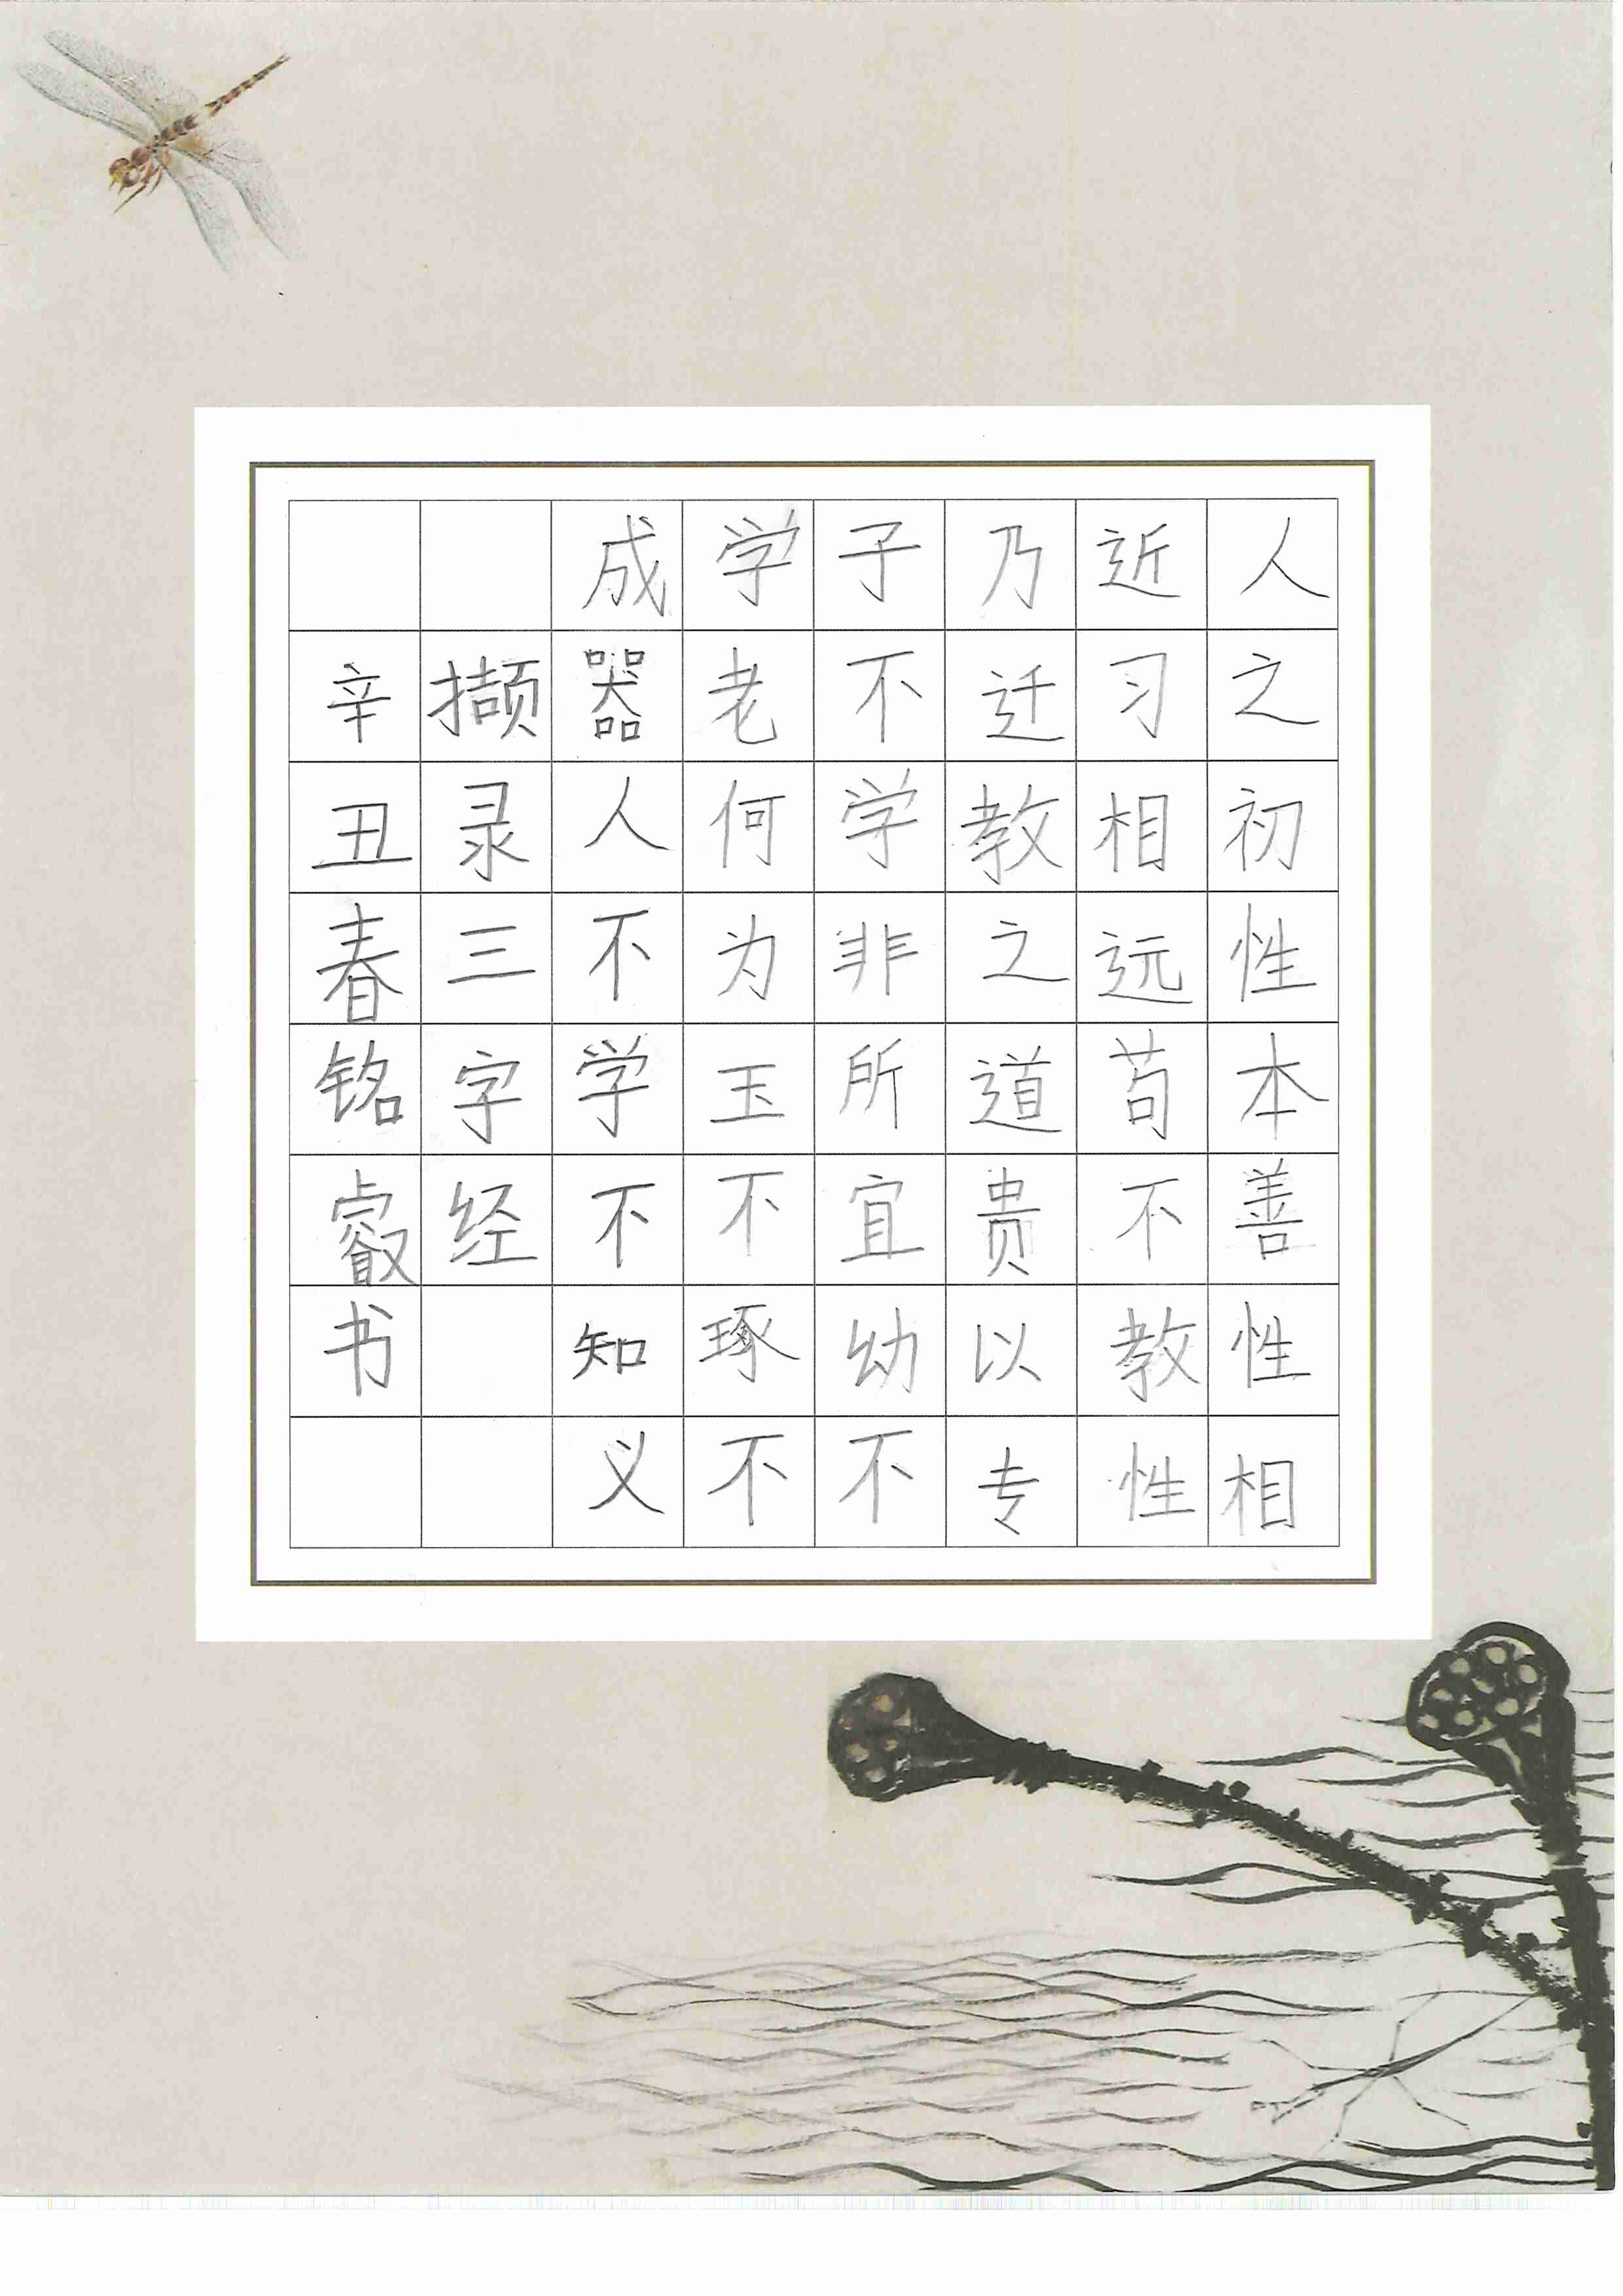 人之初性本善性相
近习相远苟不教性
乃迁教之道贵以专
子不学非所宜幼不
学老何为玉不琢不
成器人不学不知义
撷录三字经
辛丑春铭叡书